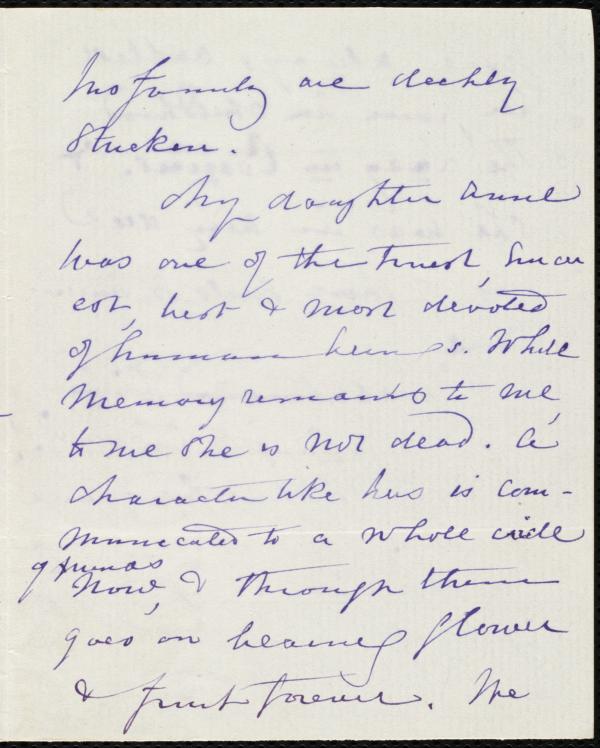 his family are deeply
stricken.
My daughter Annie
was one of the truest, sincer
est, best & most devoted
of human beings. While
memory remains to me,
to me she is not dead. A
character like hers is com-
municated to a whole circle
of friends
now, & through them
goes on bearing flower
& fruit forever. We